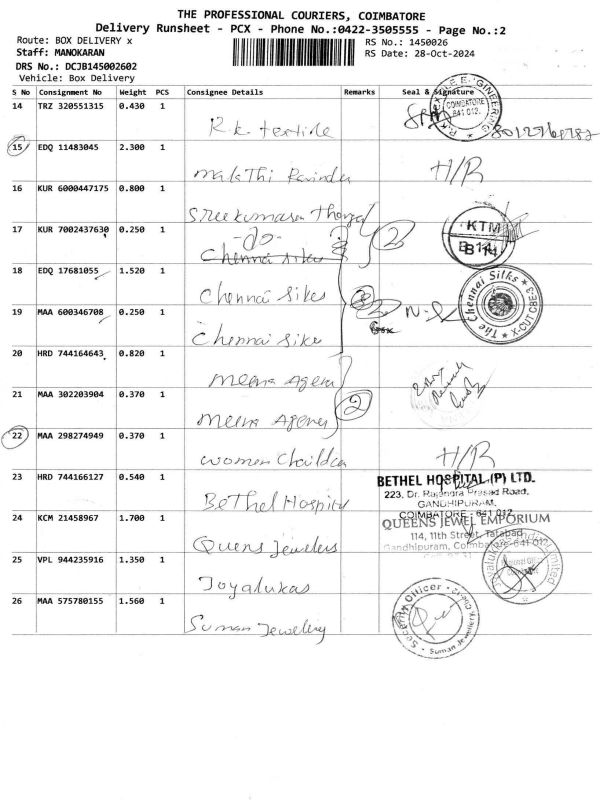 THE PROFESSIONAL COURIERS, COIMBATORE
Delivery Runsheet - PCX - Phone No.:0422-3505555 - Page No.:2
Route: BOX DELIVERY x RS No.: 1450026
Staff: MANOKARAN RS Date: 28-Oct-2024
DRS No.: DCJB145002602
Vehicle: Box Delivery
S No Consignment No Weight PCS Consignee Details Remarks Seal & Signature
14 TRZ 320551315 0.430 1
R.k. textile
COIMBATORE
641 012.
15 EDQ 11483045 2.300 1
Malathi Ravinder H/R
16 KUR 6000447175 0.800 1
Sreekumaran Thangal
17 KUR 7002437630 0.250 1
-do- 2 KTM
Chennai sikes B B14
18 EDQ 17681055 1.520 1
Chennai sikes
The Chennai Silks * X-CUT CBE3
19 MAA 600346708 0.250 1
Chennai sike
20 HRD 744164643 0.820 1
Meena Agency
21 MAA 302203904 0.370 1
Meena Agency 2
22 MAA 298274949 0.370 1
women Children H/R
23 HRD 744166127 0.540 1
Bethel Hospital
BETHEL HOSPITAL (P) LTD.
223, Dr. Rajendra Prasad Road,
GANDHIPURAM,
COIMBATORE - 641 012.
24 KCM 21458967 1.700 1
Quens Jewelers
QUEENS JEWEL EMPORIUM
114, 11th Street, Tatabad,
Gandhipuram, Coimbatore-641 012.
25 VPL 944235916 1.350 1
Joyalukas
26 MAA 575780155 1.560 1
Suman Jewelery
Security Officer
Suman Jewellers